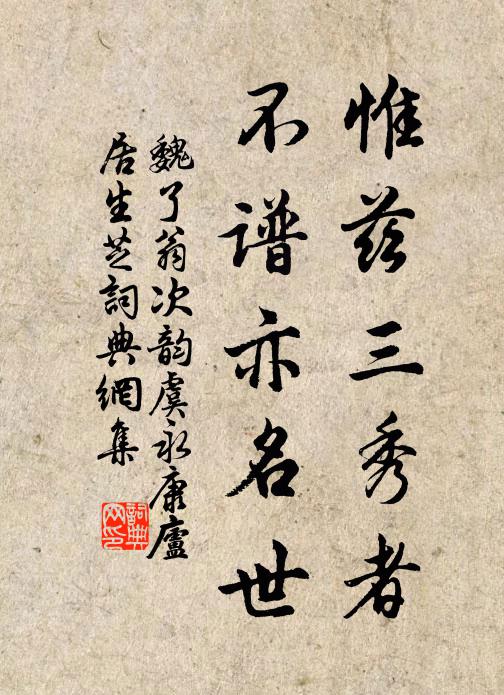 惟兹三秀者
不谱亦名世
魏了翁次韵虞永康廬
居生芝詞典網集
詞典
网印